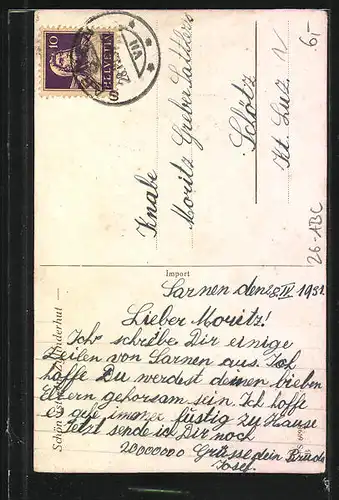 10
HELVETIA
Knabe
Moritz Greber Sattlers
Schötz
Kt. Luz.
6,-
26-ABC
Import
Schön ist ein Zylinderhut —
Sarnen den 28. IV 1931.
Lieber Moritz!
Ich schreibe Dir einige
Zeilen von Sarnen aus. Ich
hoffe Du werdest deinen lieben
Eltern gehorsam sein. Ich hoffe
es gehe immer lustig zu Hause
Jetzt sende ich Dir noch
20000000 Grüsse dein Bruder
Josef.